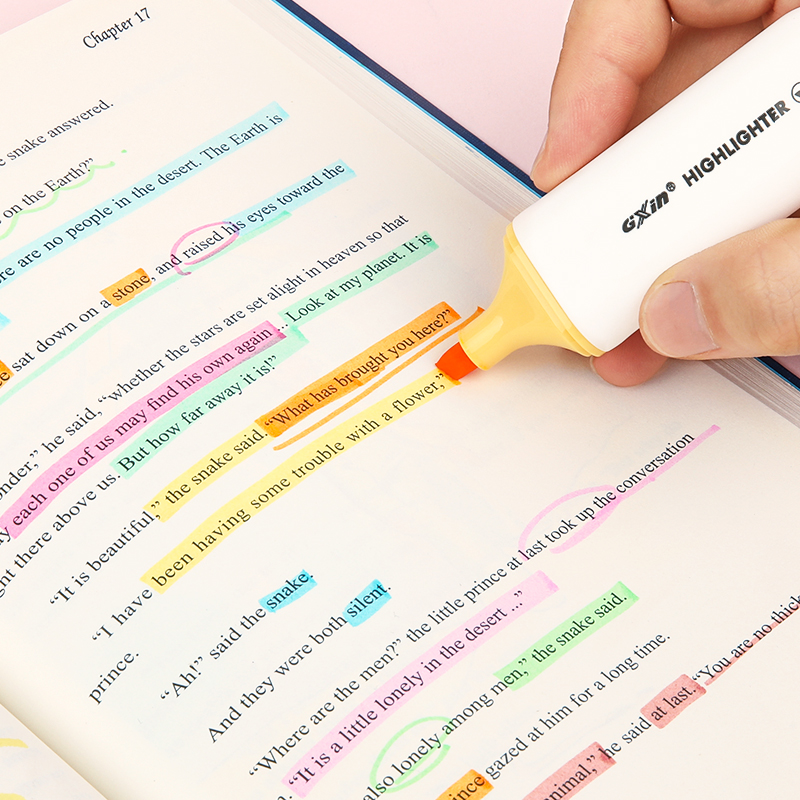 Chapter 17
e snake answered.
on the Earth?”
re are no people in the desert. The Earth is
sat down on a stone, and raised his eyes toward the
onder,” he said, “whether the stars are set alight in heaven so that
y each one of us may find his own again ... Look at my planet. It is
ght there above us. But how far away it is!”
“It is beautiful,” the snake said. “What has brought you here?”
“I have been having some trouble with a flower,”
prince.
“Ah!” said the snake.
And they were both silent.
“Where are the men?” the little prince at last took up the conversation
“It is a little lonely in the desert ...”
also lonely among men,” the snake said.
ince gazed at him for a long time.
animal,” he said at last. “You are no thick
GXin® HIGHLIGHTER